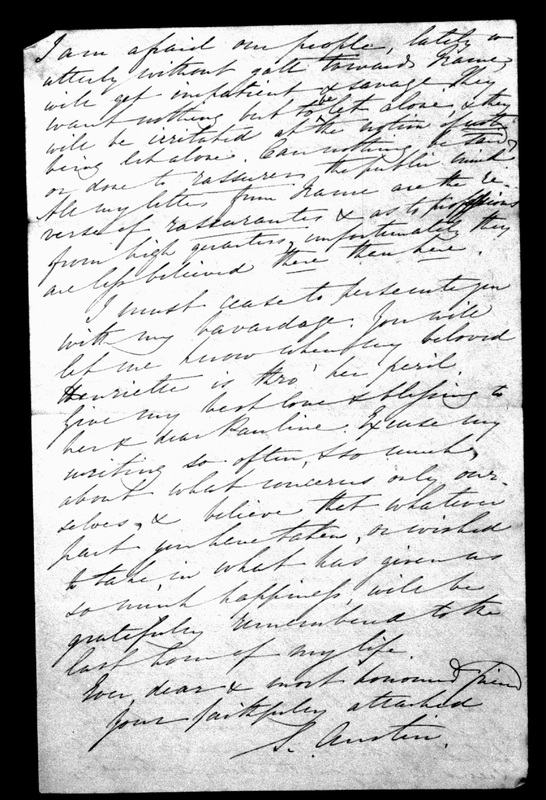 I am afraid our people, lately so
utterly without gall towards France,
will get impatient & savage. They
want nothing but to be let alone, & they
will be irritated at the notion of not
being let alone. Can nothing be said,
or done to reassure the public mind
All my letters from France are the re-
verse of rassurantes & as to
from high quarters, unfortunately they
are less believed there than here.
I must cease to persecute you
with my bavardage. You will
let me know when my beloved
Henriette is thro' her peril.
Give my best love & blessing to
her & dear Pauline. Excuse my
writing so often, & so much,
about what concerns only our-
selves, & believe that whatever
part you have taken, or wished
to take in what has given us
so much happiness, will be
gratefully remembered to the
last hour of my life.
Ever dear & most honoured friend
Your faithfully attached
S. Austin.